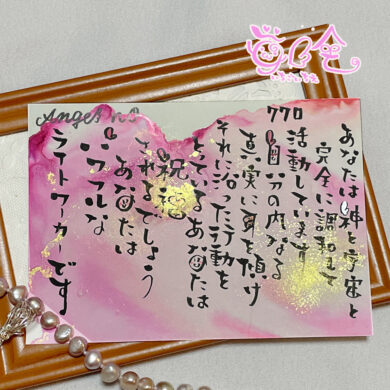 Angel no
770
あなたは神と宇宙と
完全に調和して
活動しています
自分の内なる
真実に耳を傾け
それに沿った行動を
とっているあなたは
祝福
されるでしょう
あなたは
パワフルな
ライトワーカーです